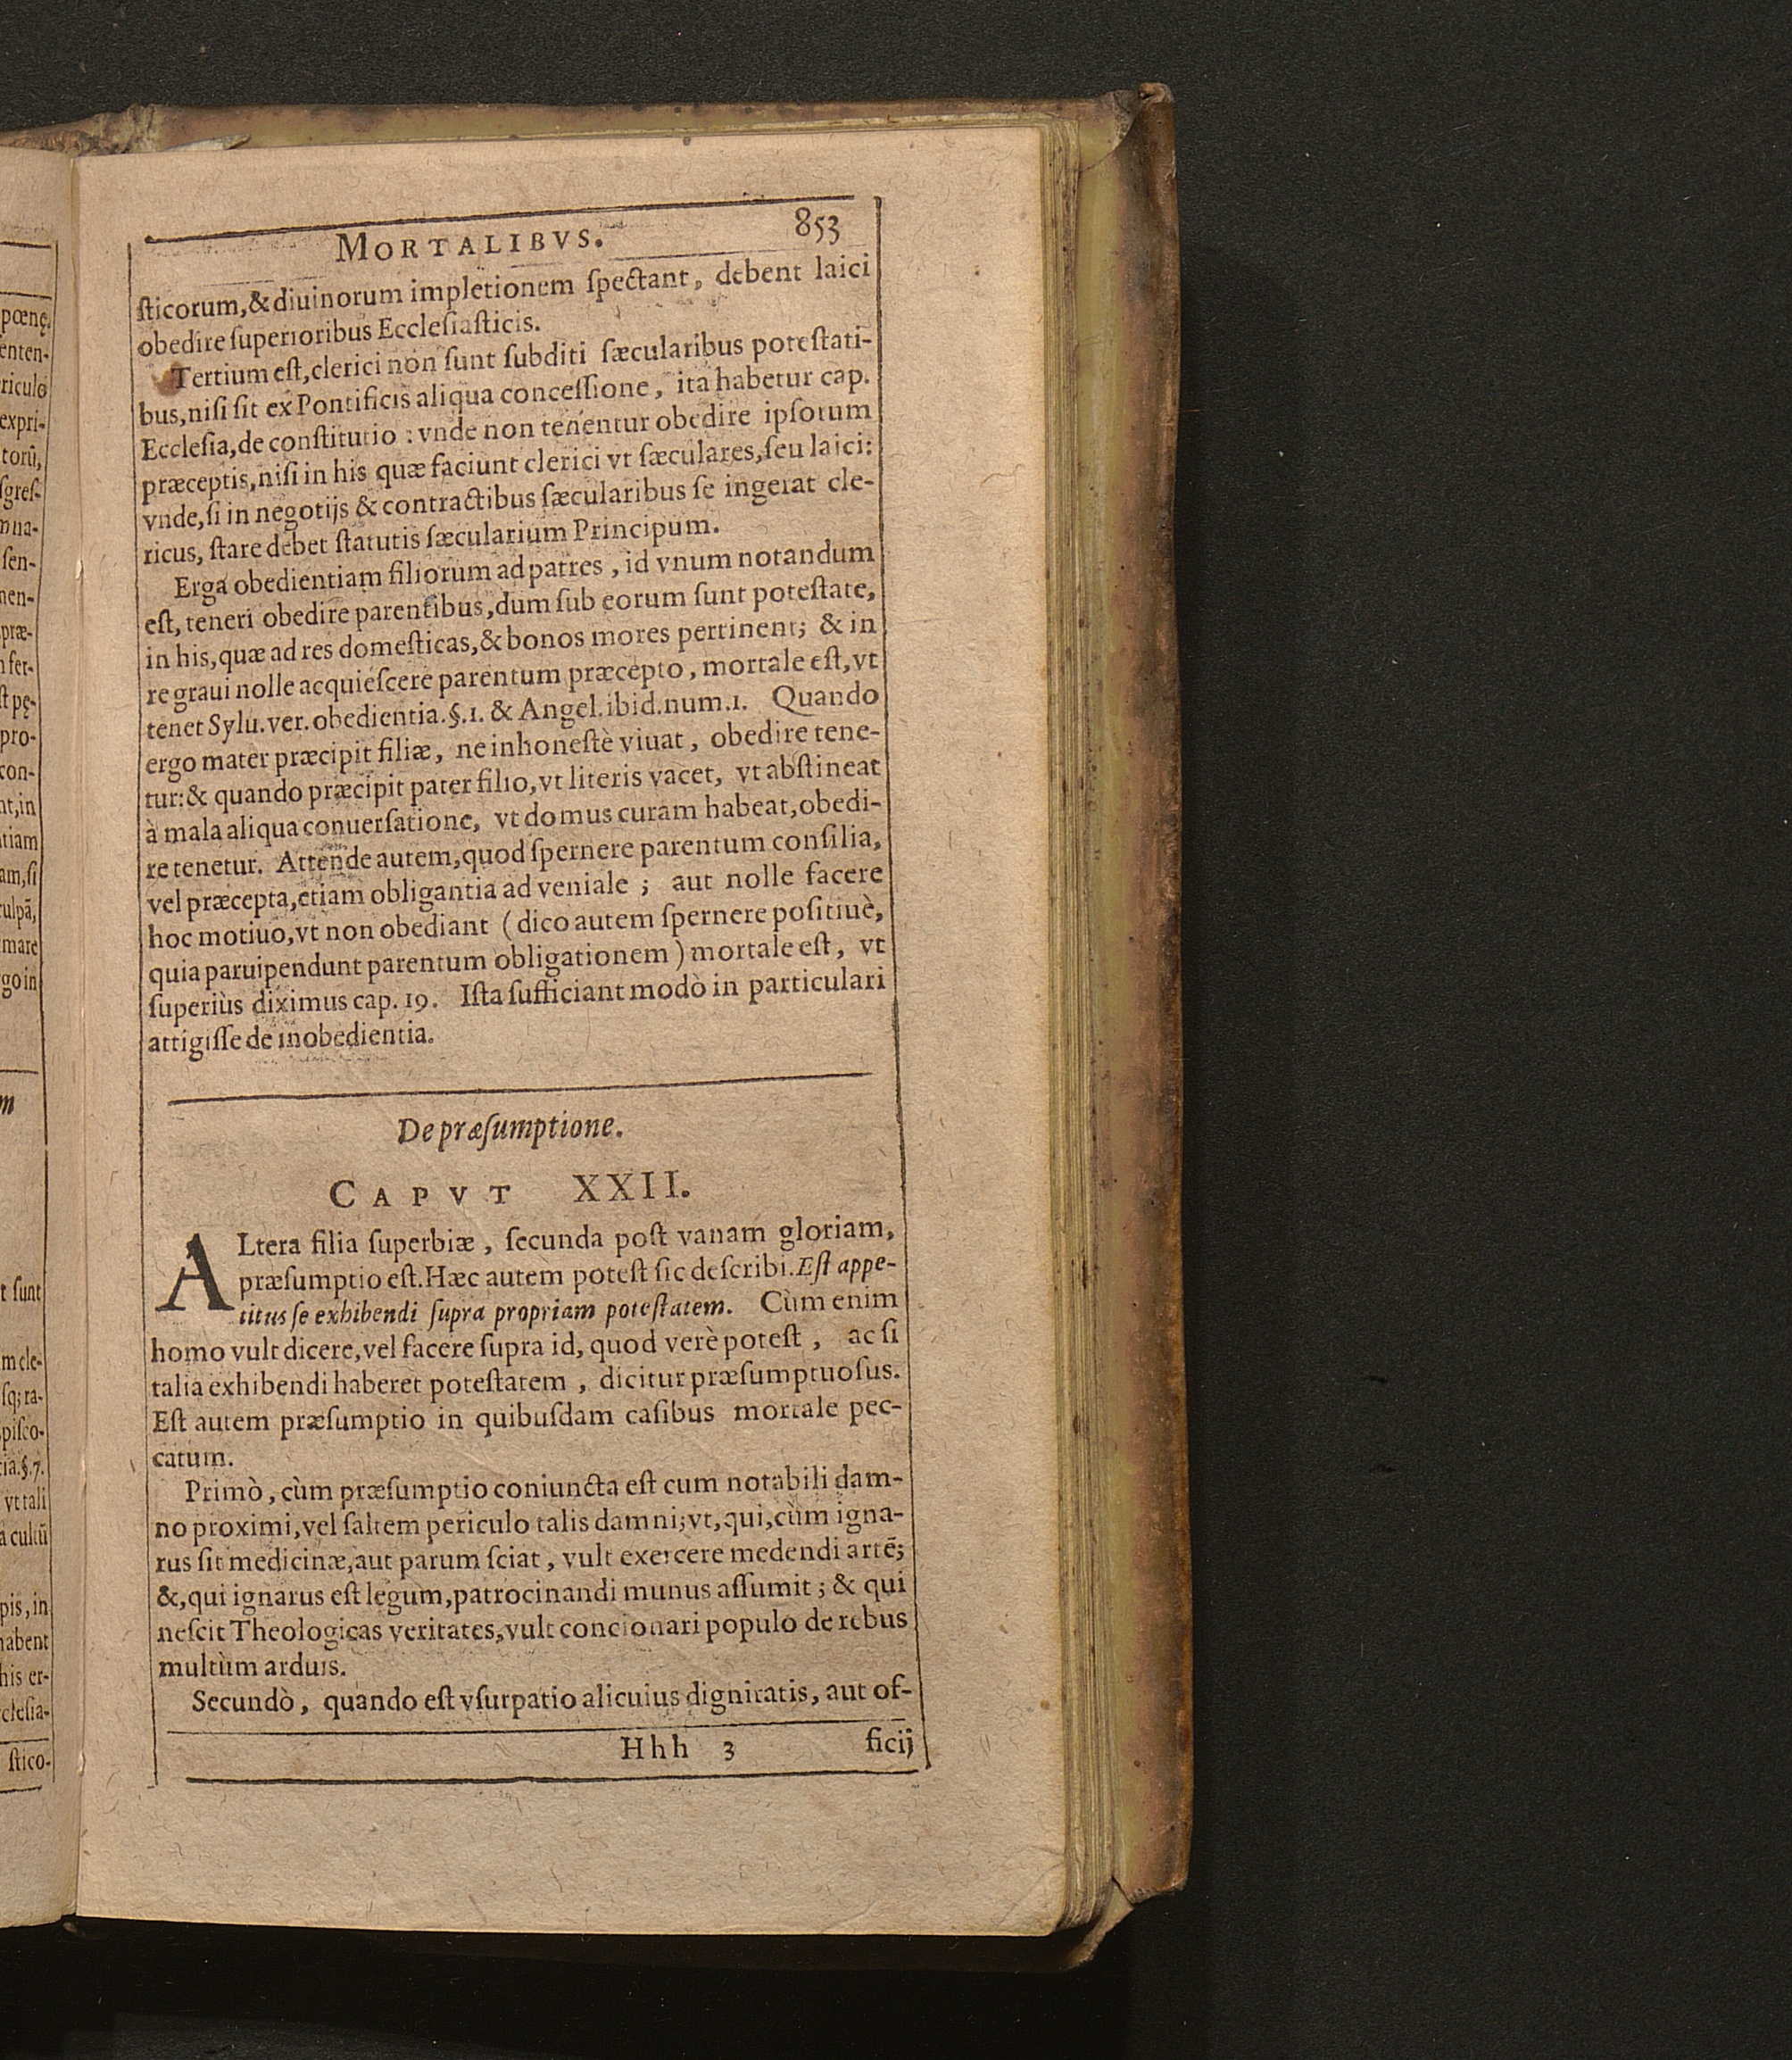 MORTALIBVS. 853
ſticorum,&diuinorum impletionem ſpectant, debent laici
obedire ſuperioribus Eccleſiaſticis.
Tertium eſt,clerici non ſunt ſubditi ſæcularibus poteſtati-
bus,niſi ſit ex Pontificis aliqua conceſſione, ita habetur cap.
Eccleſia,de conſtitutio : vnde non tenentur obedire ipſorum
præceptis,niſi in his quæ faciunt clerici vt ſæculares,ſeu laici:
vnde,ſi in negotijs & contractibus ſæcularibus ſe ingerat cle-
ricus, ſtare debet ſtatutis ſæcularium Principum.
Erga obedientiam filiorum ad patres , id vnum notandum
eſt, teneri obedire parentibus,dum ſub eorum ſunt poteſtate,
in his,quæ ad res domeſticas,& bonos mores pertinent; & in
re graui nolle acquieſcere parentum præcepto, mortale eſt,vt
tenet Sylu. ver. obedientia.§.1. & Angel.ibid.num.1. Quando
ergo mater præcipit filiæ, ne inhoneſtè viuat, obedire tene-
tur:& quando præcipit pater filio,vt literis vacet, vt abſtineat
à mala aliqua conuerſatione, vt domus curam habeat,obedi-
re tenetur. Attende autem,quod ſpernere parentum conſilia,
vel præcepta,etiam obligantia ad veniale ; aut nolle facere
hoc motiuo,vt non obediant (dico autem ſpernere poſitiuè,
quia paruipendunt parentum obligationem) mortale eſt, vt
ſuperiùs diximus cap. 19. Iſta ſufficiant modò in particulari
attigiſſe de inobedientia.
De præſumptione.
CAPVT XXII.
ALtera filia ſuperbiæ, ſecunda poſt vanam gloriam,
præſumptio eſt.Hæc autem poteſt ſic deſcribi.Eſt appe-
titus ſe exhibendi ſupra propriam poteſtatem. Cùm enim
homo vult dicere,vel facere ſupra id, quod verè poteſt , ac ſi
talia exhibendi haberet poteſtatem , dicitur præſumptuoſus.
Eſt autem præſumptio in quibuſdam caſibus mortale pec-
catum.
Primò, cùm præſumptio coniuncta eſt cum notabili dam-
no proximi,vel ſaltem periculo talis damni;vt,qui,cùm igna-
rus ſit medicinæ,aut parum ſciat, vult exercere medendi artē;
&,qui ignarus eſt legum,patrocinandi munus aſſumit; & qui
neſcit Theologicas veritates,vult concionari populo de rebus
multùm arduis.
Secundò, quando eſt vſurpatio alicuius dignitatis, aut of-
Hhh 3 ficij
pœnę,
enten-
riculo
expri-
torū,
ſgreſ-
ſen-
præ-
ſt pę-
pro-
con-
nt,in
tiam
am,ſi
culpā,
mare
go in
t ſunt
m cle-
ſq; ra-
piſco-
tia.§.7.
vt tali
a cultū
pis, in
habent
his er-
cleſia-
ſtico-